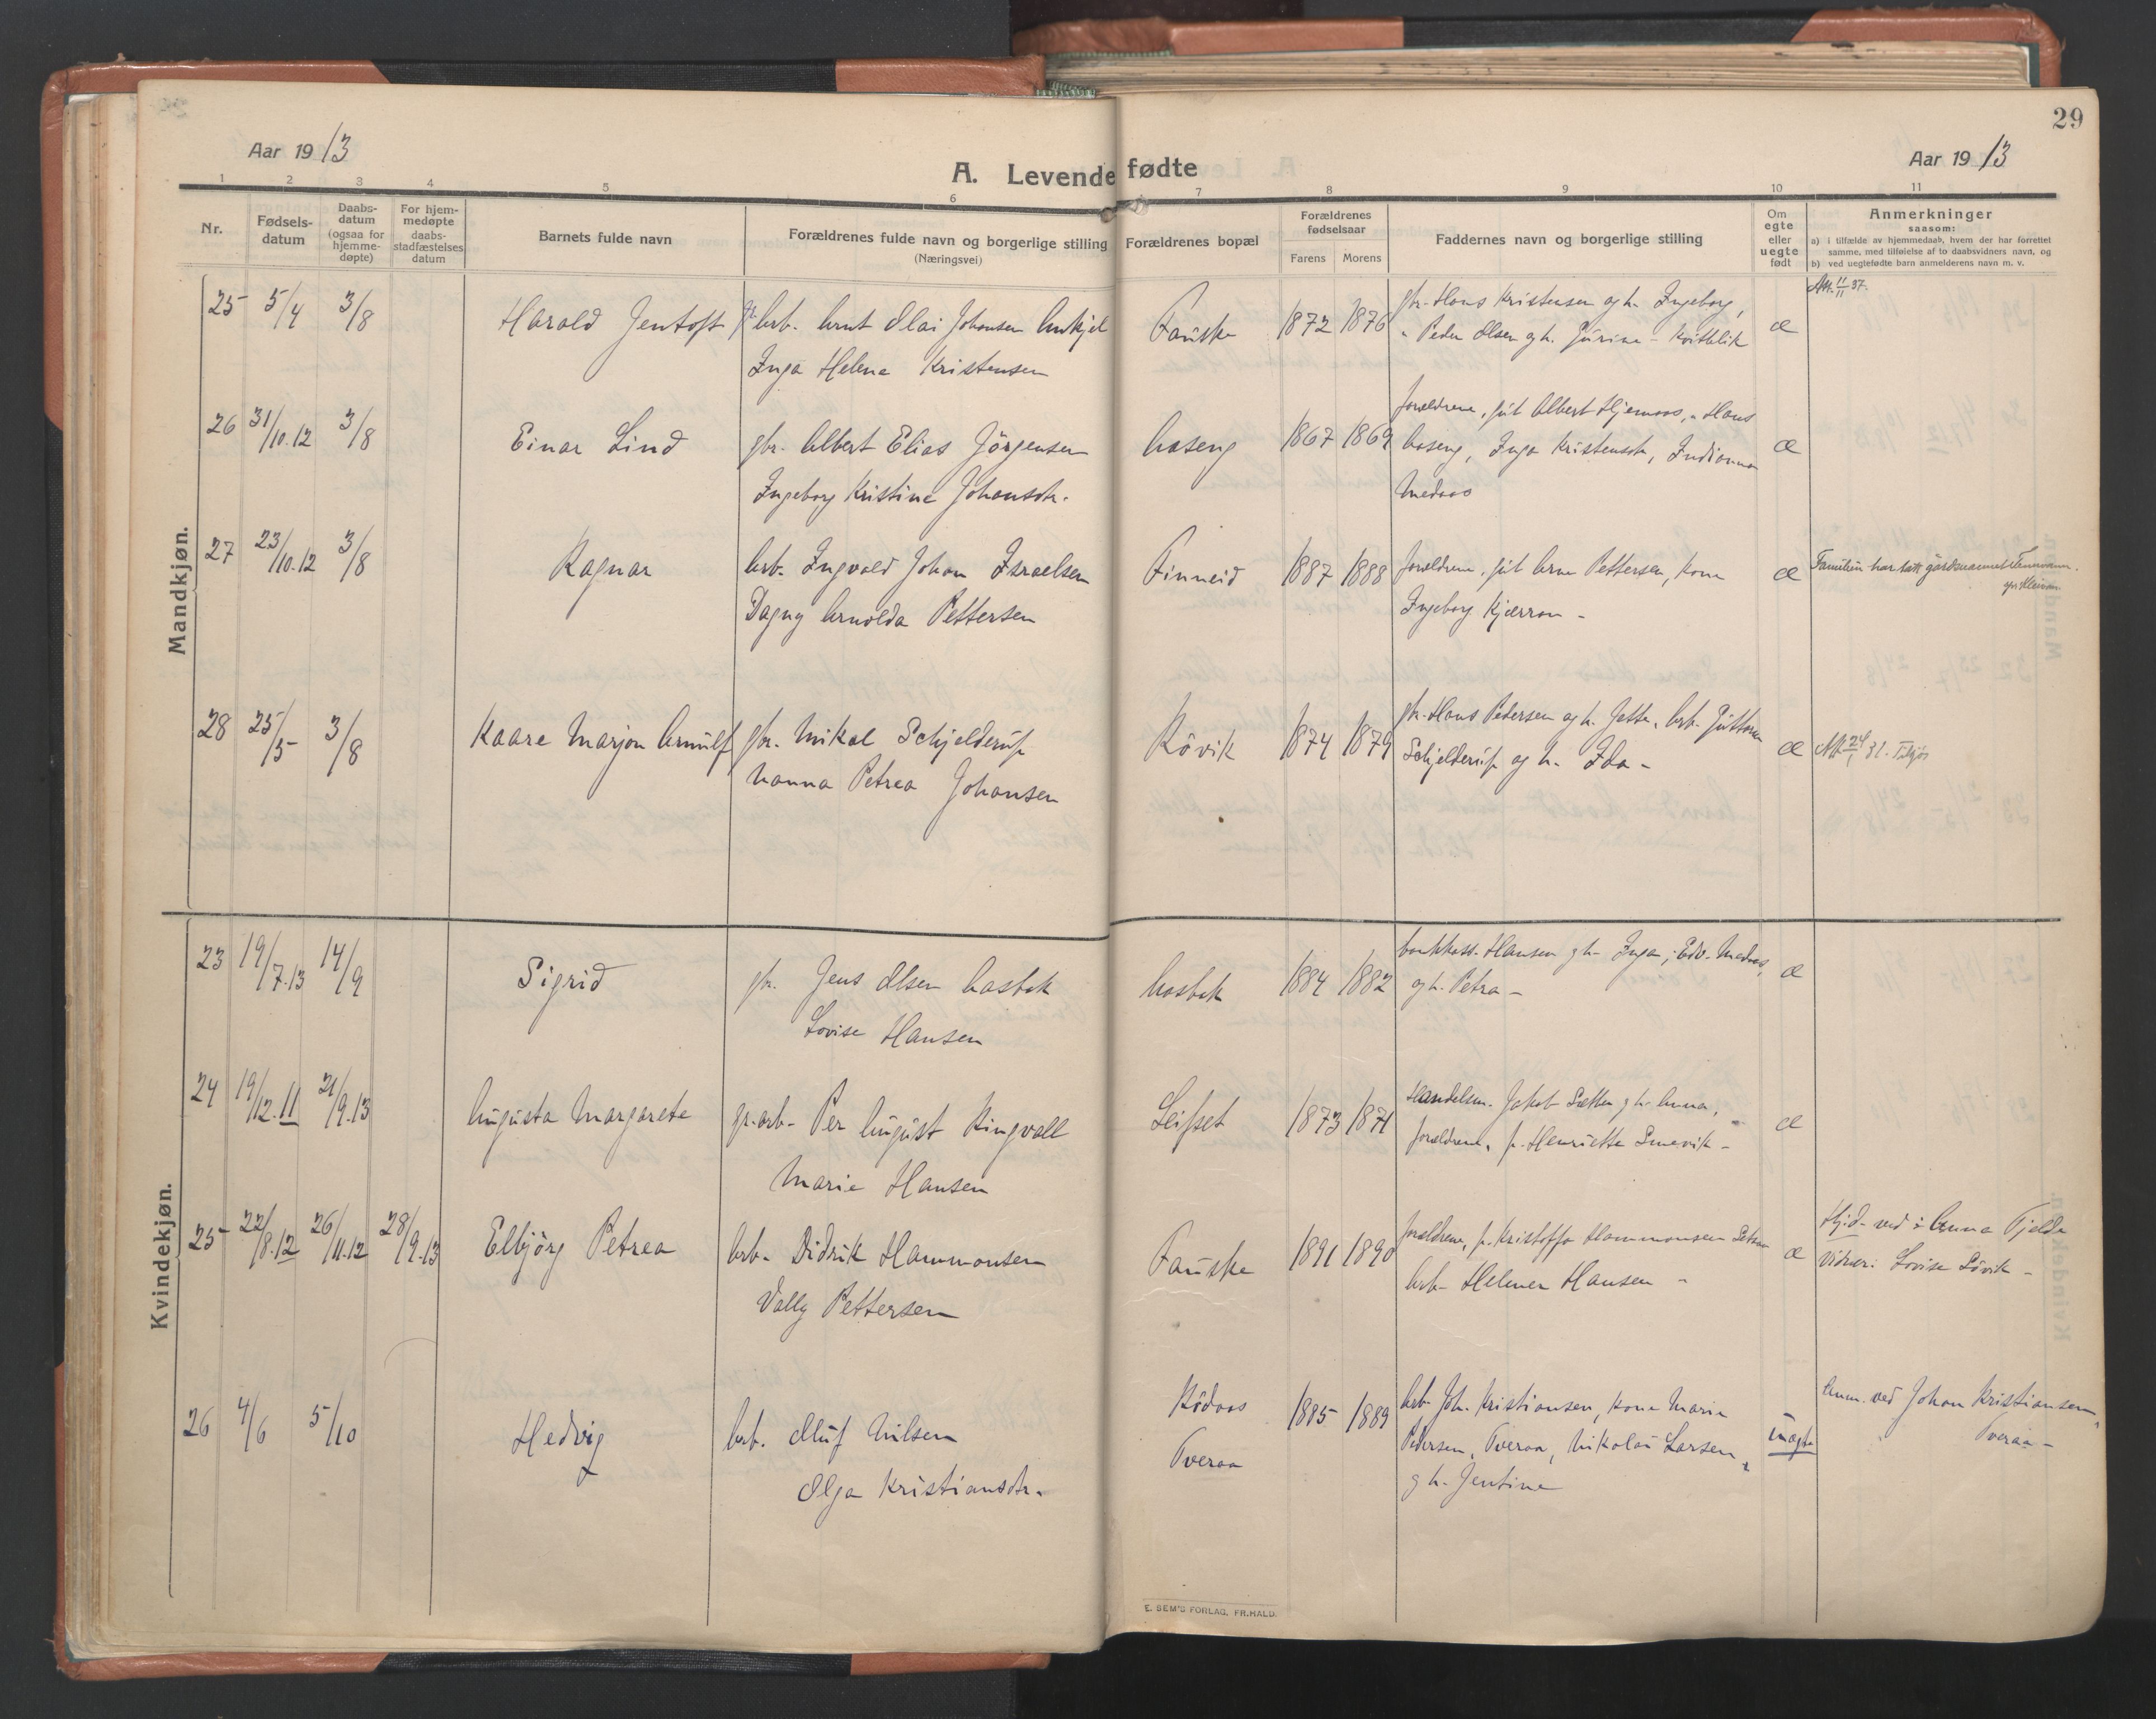 29
Aar 1913
Aar 1913
A. Levende fødte
1 2 3 4 5 6 7 8 9 10 11
Nr.
Fødsels-
datum
Daabs-
datum
(ogsaa for
hjemme-
døpte)
For hjem-
medøpte
daabs-
stadfæstelses
datum
Barnets fulde navn
Forældrenes fulde navn og borgerlige stilling
(Næringsvei)
Forældrenes bopæl
Forældrenes
fødselsaar
Farens Morens
Faddernes navn og borgerlige stilling
Om
egte
eller
uegte
født
Anmerkninger
saasom:
a) i tilfælde av hjemmedaab, hvem der har forrettet
samme, med tilføielse af to daabsvidners navn, og
b) ved uegtefødte barn anmelderens navn m. v.
Mandkjøn.
25 5/4 3/8 Harald Jentoft arb. Arnt Olai Johansen Fauske 1872 1876 gbr. Hans Kristensen og h. Ingeborg, æ Att. 11/11 37.
Inga Helene Kristensen " Peder Olsen og h. Jurine - Kvitblik
26 31/10.12 3/8 Einar Lind gbr. Albert Elias Jörgensen Aaseng 1867 1869 forældrene, gut Albert Hjemaas, " Hans æ
Ingeborg Kristine Johansdtr. Aaseng, Inga Kristensdtr, Indianna
Medaas
27 23/10.12 3/8 Ragnar Arb. Ingvald Johan Israelsen Finneid 1887 1888 forældrene, gut Arne Pettersen, kone æ Familien har tatt gårdsnavnet
Dagny Arnolda Pettersen Ingeborg Kjærran -
28 25/5 3/8 Kaare Marjon Arnulf gbr. Mikal Schjelderup Rövik 1874 1879 gbr. Hans Pedersen og h. Jette, arb. Guttorm æ Att. 31.
Nanna Petrea Johansen Schjelderup og h. Ida -
Kvindekjøn.
23 19/7.13 14/9 Sigrid gbr. Jens Olsen Aasbak Aasbak 1884 1882 bankkass. Hansen og h. Inga, Edv. Medaas, æ
Lovise Hansen og h. Petra -
24 19/12.11 21/9.13 Augusta Margarete gr. arb. Per August Ringvall Leifset 1873 1871 Handelsm. Jakob Sætter og h. Anna, æ
Marie Hansen forældrene, p. Henriette
25 22/8.12 26/11.12 28/9.13 Elbjörg Petrea Arb. Didrik Hammonsen Fauske 1891 1890 forældrene, p. Kristoffa Hammonsen æ Hjd. ved : Anna Tjelde
Vally Pettersen arb. Helmer Hansen - Vidner: Lovise Lövik -
26 4/6 5/10 Hedvig Arb. Oluf Nilsen Rödaas 1885 1889 Arb. Joh. Kristiansen, kone Marie uægte Anm. ved Johan Kristiansen,
Olga Kristiansdtr. Tveraa Pedersen, Tveraa, Nikolai Larsen, Tveraa -
og h. Jentine
E. SEM'S FORLAG, FR.HALD.